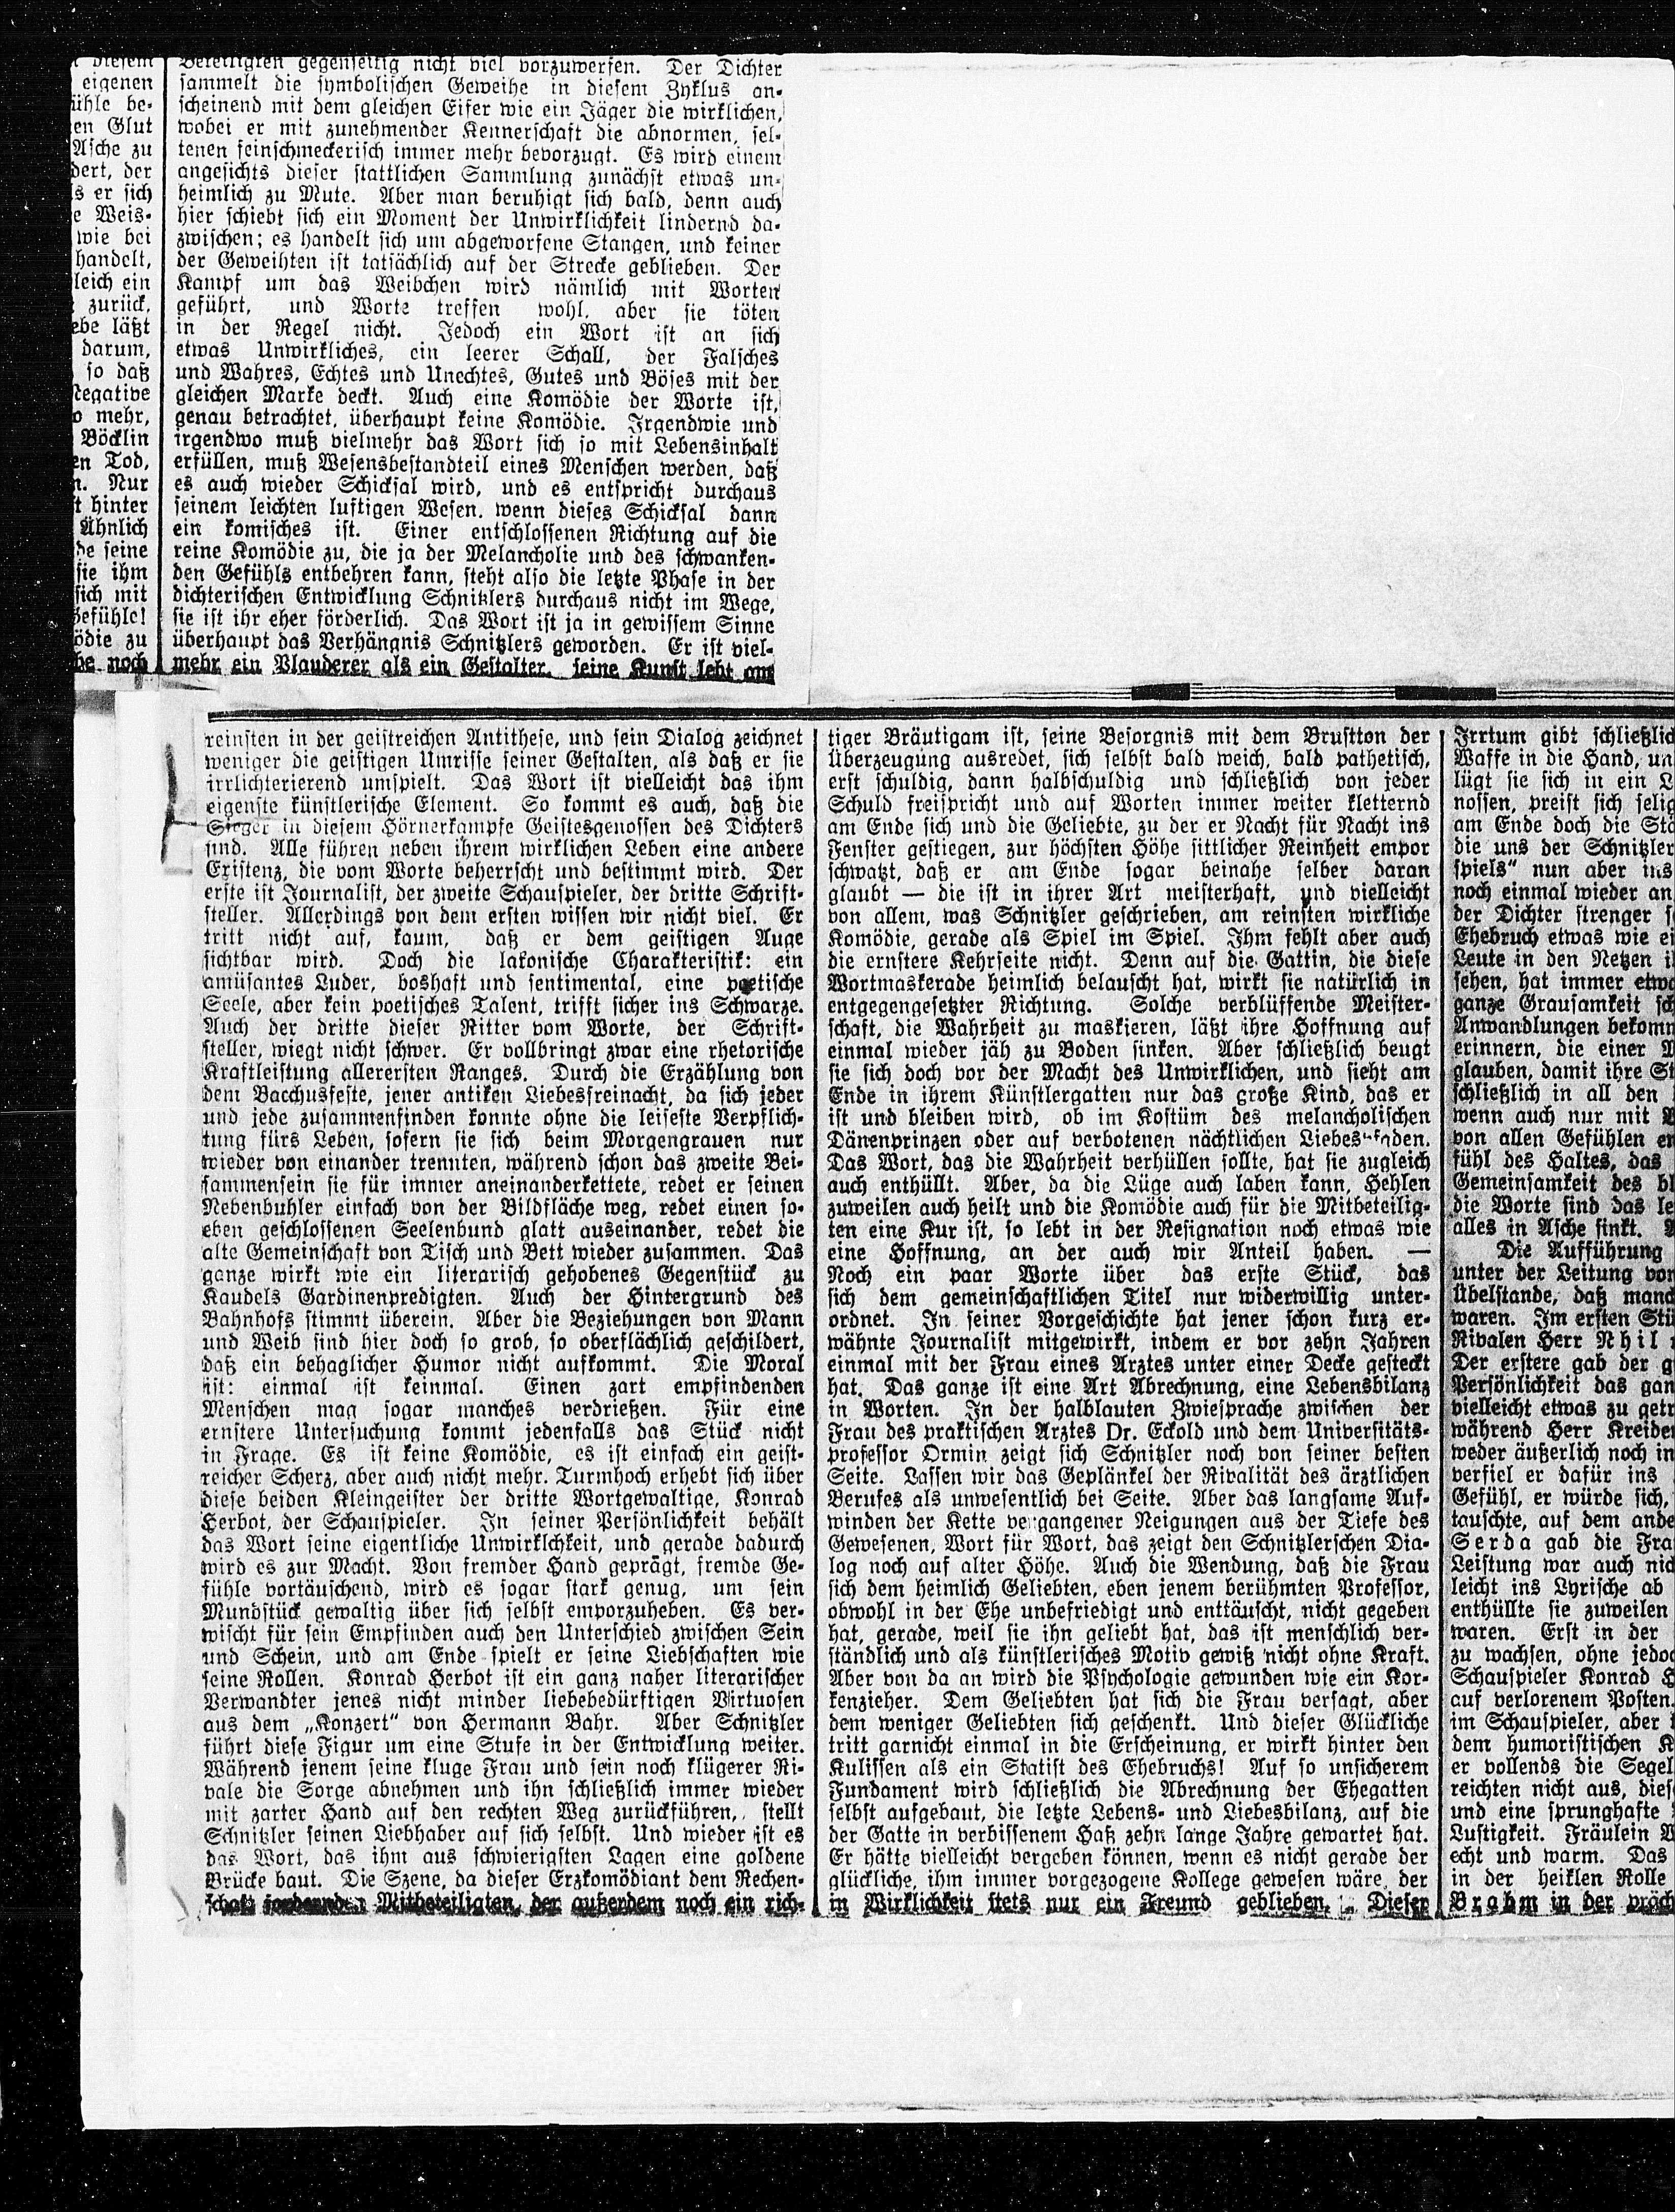 diesem
eigenen
ühle be-
en Glut
Asche zu
dert, der
s er sich
e Weis-
wie bei
handelt,
leich ein
zurück,
ebe läßt
darum,
so daß
Negative
o mehr,
Böcklin
en Tod,
n. Nur
t hinter
Ähnlich
de seine
sie ihm
sich mit
Gefühle!
ödie zu
be noch
Beteiligten gegenseitig nicht viel vorzuwerfen. Der Dichter
sammelt die symbolischen Geweihe in diesem Zyklus an-
scheinend mit dem gleichen Eifer wie ein Jäger die wirklichen,
wobei er mit zunehmender Kennerschaft die abnormen, sel-
tenen feinschmeckerisch immer mehr bevorzugt. Es wird einem
angesichts dieser stattlichen Sammlung zunächst etwas un-
heimlich zu Mute. Aber man beruhigt sich bald, denn auch
hier schiebt sich ein Moment der Unwirklichkeit lindernd da-
zwischen; es handelt sich um abgeworfene Stangen, und keiner
der Geweihten ist tatsächlich auf der Strecke geblieben. Der
Kampf um das Weibchen wird nämlich mit Worten
geführt, und Worte treffen wohl, aber sie töten
in der Regel nicht. Jedoch ein Wort ist an sich
etwas Unwirkliches, ein leerer Schall, der Falsches
und Wahres, Echtes und Unechtes, Gutes und Böses mit der
gleichen Marke deckt. Auch eine Komödie der Worte ist,
genau betrachtet, überhaupt keine Komödie. Irgendwie und
irgendwo muß vielmehr das Wort sich so mit Lebensinhalt
erfüllen, muß Wesensbestandteil eines Menschen werden, daß
es auch wieder Schicksal wird, und es entspricht durchaus
seinem leichten luftigen Wesen, wenn dieses Schicksal dann
ein komisches ist. Einer entschlossenen Richtung auf die
reine Komödie zu, die ja der Melancholie und des schwanken-
den Gefühls entbehren kann, steht also die letzte Phase in der
dichterischen Entwicklung Schnitzlers durchaus nicht im Wege,
sie ist ihr eher förderlich. Das Wort ist ja in gewissem Sinne
überhaupt das Verhängnis Schnitzlers geworden. Er ist viel-
mehr ein Plauderer als ein Gestalter, seine Kunst lebt am
reinsten in der geistreichen Antithese, und sein Dialog zeichnet
weniger die geistigen Umrisse seiner Gestalten, als daß er sie
irrlichterierend umspielt. Das Wort ist vielleicht das ihm
eigenste künstlerische Element. So kommt es auch, daß die
Sieger in diesem Hörnerkampfe Geistesgenossen des Dichters
sind. Alle führen neben ihrem wirklichen Leben eine andere
Existenz, die vom Worte beherrscht und bestimmt wird. Der
erste ist Journalist, der zweite Schauspieler, der dritte Schrift-
steller. Allerdings von dem ersten wissen wir nicht viel. Er
tritt nicht auf, kaum, daß er dem geistigen Auge
sichtbar wird. Doch die lakonische Charakteristik: ein
amüsantes Luder, boshaft und sentimental, eine poetische
Seele, aber kein poetisches Talent, trifft sicher ins Schwarze.
Auch der dritte dieser Ritter vom Worte, der Schrift-
steller, wiegt nicht schwer. Er vollbringt zwar eine rhetorische
Kraftleistung allerersten Ranges. Durch die Erzählung von
dem Bacchusfeste, jener antiken Liebesfreinacht, da sich jeder
und jede zusammenfinden konnte ohne die leiseste Verpflich-
tung fürs Leben, sofern sie sich beim Morgengrauen nur
wieder von einander trennten, während schon das zweite Bei-
sammensein sie für immer aneinanderkettete, redet er seinen
Nebenbuhler einfach von der Bildfläche weg, redet einen so-
eben geschlossenen Seelenbund glatt auseinander, redet die
alte Gemeinschaft von Tisch und Bett wieder zusammen. Das
ganze wirkt wie ein literarisch gehobenes Gegenstück zu
Kaudels Gardinenpredigten. Auch der Hintergrund des
Bahnhofs stimmt überein. Aber die Beziehungen von Mann
und Weib sind hier doch so grob, so oberflächlich geschildert,
daß ein behaglicher Humor nicht aufkommt. Die Moral
ist: einmal ist keinmal. Einen zart empfindenden
Menschen mag sogar manches verdrießen. Für eine
ernstere Untersuchung kommt jedenfalls das Stück nicht
in Frage. Es ist keine Komödie, es ist einfach ein geist-
reicher Scherz, aber auch nicht mehr. Turmhoch erhebt sich über
diese beiden Kleingeister der dritte Wortgewaltige, Konrad
Herbot, der Schauspieler. In seiner Persönlichkeit behält
das Wort seine eigentliche Unwirklchkeit, und gerade dadurch
wird es zur Macht. Von fremder Hand geprägt, fremde Ge-
fühle vortäuschend, wird es sogar stark genug, um sein
Mundstück gewaltig über sich selbst emporzuheben. Es ver-
wischt für sein Empfinden auch den Unterschied zwischen Sein
und Schein, und am Ende spielt er seine Liebschaften wie
seine Rollen. Konrad Herbot ist ein ganz naher literarischer
Verwandter jenes nicht minder liebebedürftigen Virtuosen
aus dem „Konzert“ von Hermann Bahr. Aber Schnitzler
führt diese Figur um eine Stufe in der Entwicklung weiter.
Während jenem seine kluge Frau und sein noch klügerer Ri-
vale die Sorge abnehmen und ihn schließlich immer wieder
mit zarter Hand auf den rechten Weg zurückführen, stellt
Schnitzler seinen Liebhaber auf sich selbst. Und wieder ist es
das Wort, das ihm aus schwierigsten Lagen eine goldene
Brücke baut. Die Szene, da dieser Erzkomödiant dem Rechen-
schaft fordernden Mitbeteiligten, der außerdem noch ein rich-
tiger Bräutigam ist, seine Besorgnis mit dem Brustton der
Überzeugung ausredet, sich selbst bald weich, bald pathetisch,
erst schuldig, dann halbschuldig und schließlich von jeder
Schuld freispricht und auf Worten immer weiter kletternd
am Ende sich und die Geliebte, zu der er Nacht für Nacht ins
Fenster gestiegen, zur höchsten Höhe sittlicher Reinheit empor
schwatzt, daß er am Ende sogar beinahe selber daran
glaubt — die ist in ihrer Art meisterhaft, und vielleicht
von allem, was Schnitzler geschrieben, am reinsten wirkliche
Komödie, gerade als Spiel im Spiel. Ihm fehlt aber auch
die ernstere Kehrseite nicht. Denn auf die Gattin, die diese
Wortmaskerade heimlich belauscht hat, wirkt sie natürlich in
entgegengesetzter Richtung. Solche verblüffende Meister-
schaft, die Wahrheit zu maskieren, läßt ihre Hoffnung auf
einmal wieder jäh zu Boden sinken. Aber schließlich beugt
sie sich doch vor der Macht des Unwirklichen, und sieht am
Ende in ihrem Künstlergatten nur das große Kind, das er
ist und bleiben wird, ob im Kostüm des melancholischen
Dänenprinzen oder auf verbotenen nächtlichen Liebespfaden.
Das Wort, das die Wahrheit verhüllen sollte, hat sie zugleich
auch enthüllt. Aber, da die Lüge auch laben kann, Hehlen
zuweilen auch heilt und die Komödie auch für die Mitbeteilig-
ten eine Kur ist, so lebt in der Resignation noch etwas wie
eine Hoffnung, an der auch wir Anteil haben. —
Noch ein paar Worte über das erste Stück, das
sich dem gemeinschaftlichen Titel nur widerwillig unter-
ordnet. In seiner Vorgeschichte hat jener schon kurz er-
wähnte Journalist mitgewirkt, indem er vor zehn Jahren
einmal mit der Frau eines Arztes unter einer Decke gesteckt
hat. Das ganze ist eine Art Abrechnung, eine Lebensbilanz
in Worten. In der halblauten Zwiesprache zwischen der
Frau des praktischen Arztes Dr. Eckold und dem Universitäts-
professor Ormin zeigt sich Schnitzler noch von seiner besten
Seite. Lassen wir das Geplänkel der Rivalität des ärztlichen
Berufes als unwesentlich bei Seite. Aber das langsame Auf-
winden der Kette vergangener Neigungen aus der Tiefe des
Gewesenen, Wort für Wort, das zeigt den Schnitzlerschen Dia-
log noch auf alter Höhe. Auch die Wendung, daß die Frau
sich dem heimlich Geliebten, eben jenem berühmten Professor,
obwohl in der Ehe unbefriedigt und enttäuscht, nicht gegeben
hat, gerade, weil sie ihn geliebt hat, das ist menschlich ver-
ständlich und als künstlerisches Motiv gewiß nicht ohne Kraft.
Aber von da an wird die Psychologie gewunden wie ein Kor-
kenzieher. Dem Geliebten hat sich die Frau versagt, aber
dem weniger Geliebten sich geschenkt. Und dieser Glückliche
tritt garnicht einmal in die Erscheinung, er wirkt hinter den
Kulissen als ein Statist des Ehebruchs! Auf so unsicherem
Fundament wird schließlich die Abrechnung der Ehegatten
selbst aufgebaut, die letzte Lebens- und Liebesbilanz, auf die
der Gatte in verbissenem Haß zehn lange Jahre gewartet hat.
Er hätte vielleicht vergeben können, wenn es nicht gerade der
glückliche, ihm immer vorgezogene Kollege gewesen wäre, der
in Wirklichkeit stets nur ein Freund geblieben. Dieser
Irrtum gibt schließlich
Waffe in die Hand, un
lügt sie sich in ein L
nossen, preist sich selig
am Ende doch die Stä
die uns der Schnitzler
spiels“ nun aber ins
noch einmal wieder an
der Dichter strenger s
Ehebruch etwas wie ei
Leute in den Netzen i
sehen, hat immer etwa
ganze Grausamkeit sch
Anwandlungen bekomm
erinnern, die einer M
glauben, damit ihre St
schließlich in all den
wenn auch nur mit B
von allen Gefühlen er
fühl des Haltes, das
Gemeinsamkeit des bl
die Worte sind das le
alles in Asche sinkt.
Die Aufführung
unter der Leitung von
Übelstande, daß manch
waren. Im ersten Stü
Rivalen Herr Nhil
Der erstere gab der g
Persönlichkeit das gan
vielleicht etwas zu getr
während Herr Kreide
weder äußerlich noch in
verfiel er dafür ins
Gefühl, er würde sich,
tauschte, auf dem ande
Serda gab die Fra
Leistung war auch nic
leicht ins Lyrische ab
enthüllte sie zuweilen
waren. Erst in der
zu wachsen, ohne jedoc
Schauspieler Konrad H
auf verlorenem Posten.
im Schauspieler, aber
dem humoristischen K
er vollends die Segel
reichten nicht aus, dies
und eine sprunghafte
Lustigkeit. Fräulein W
echt und warm. Das
in der heiklen Rolle
Brahm in der präch